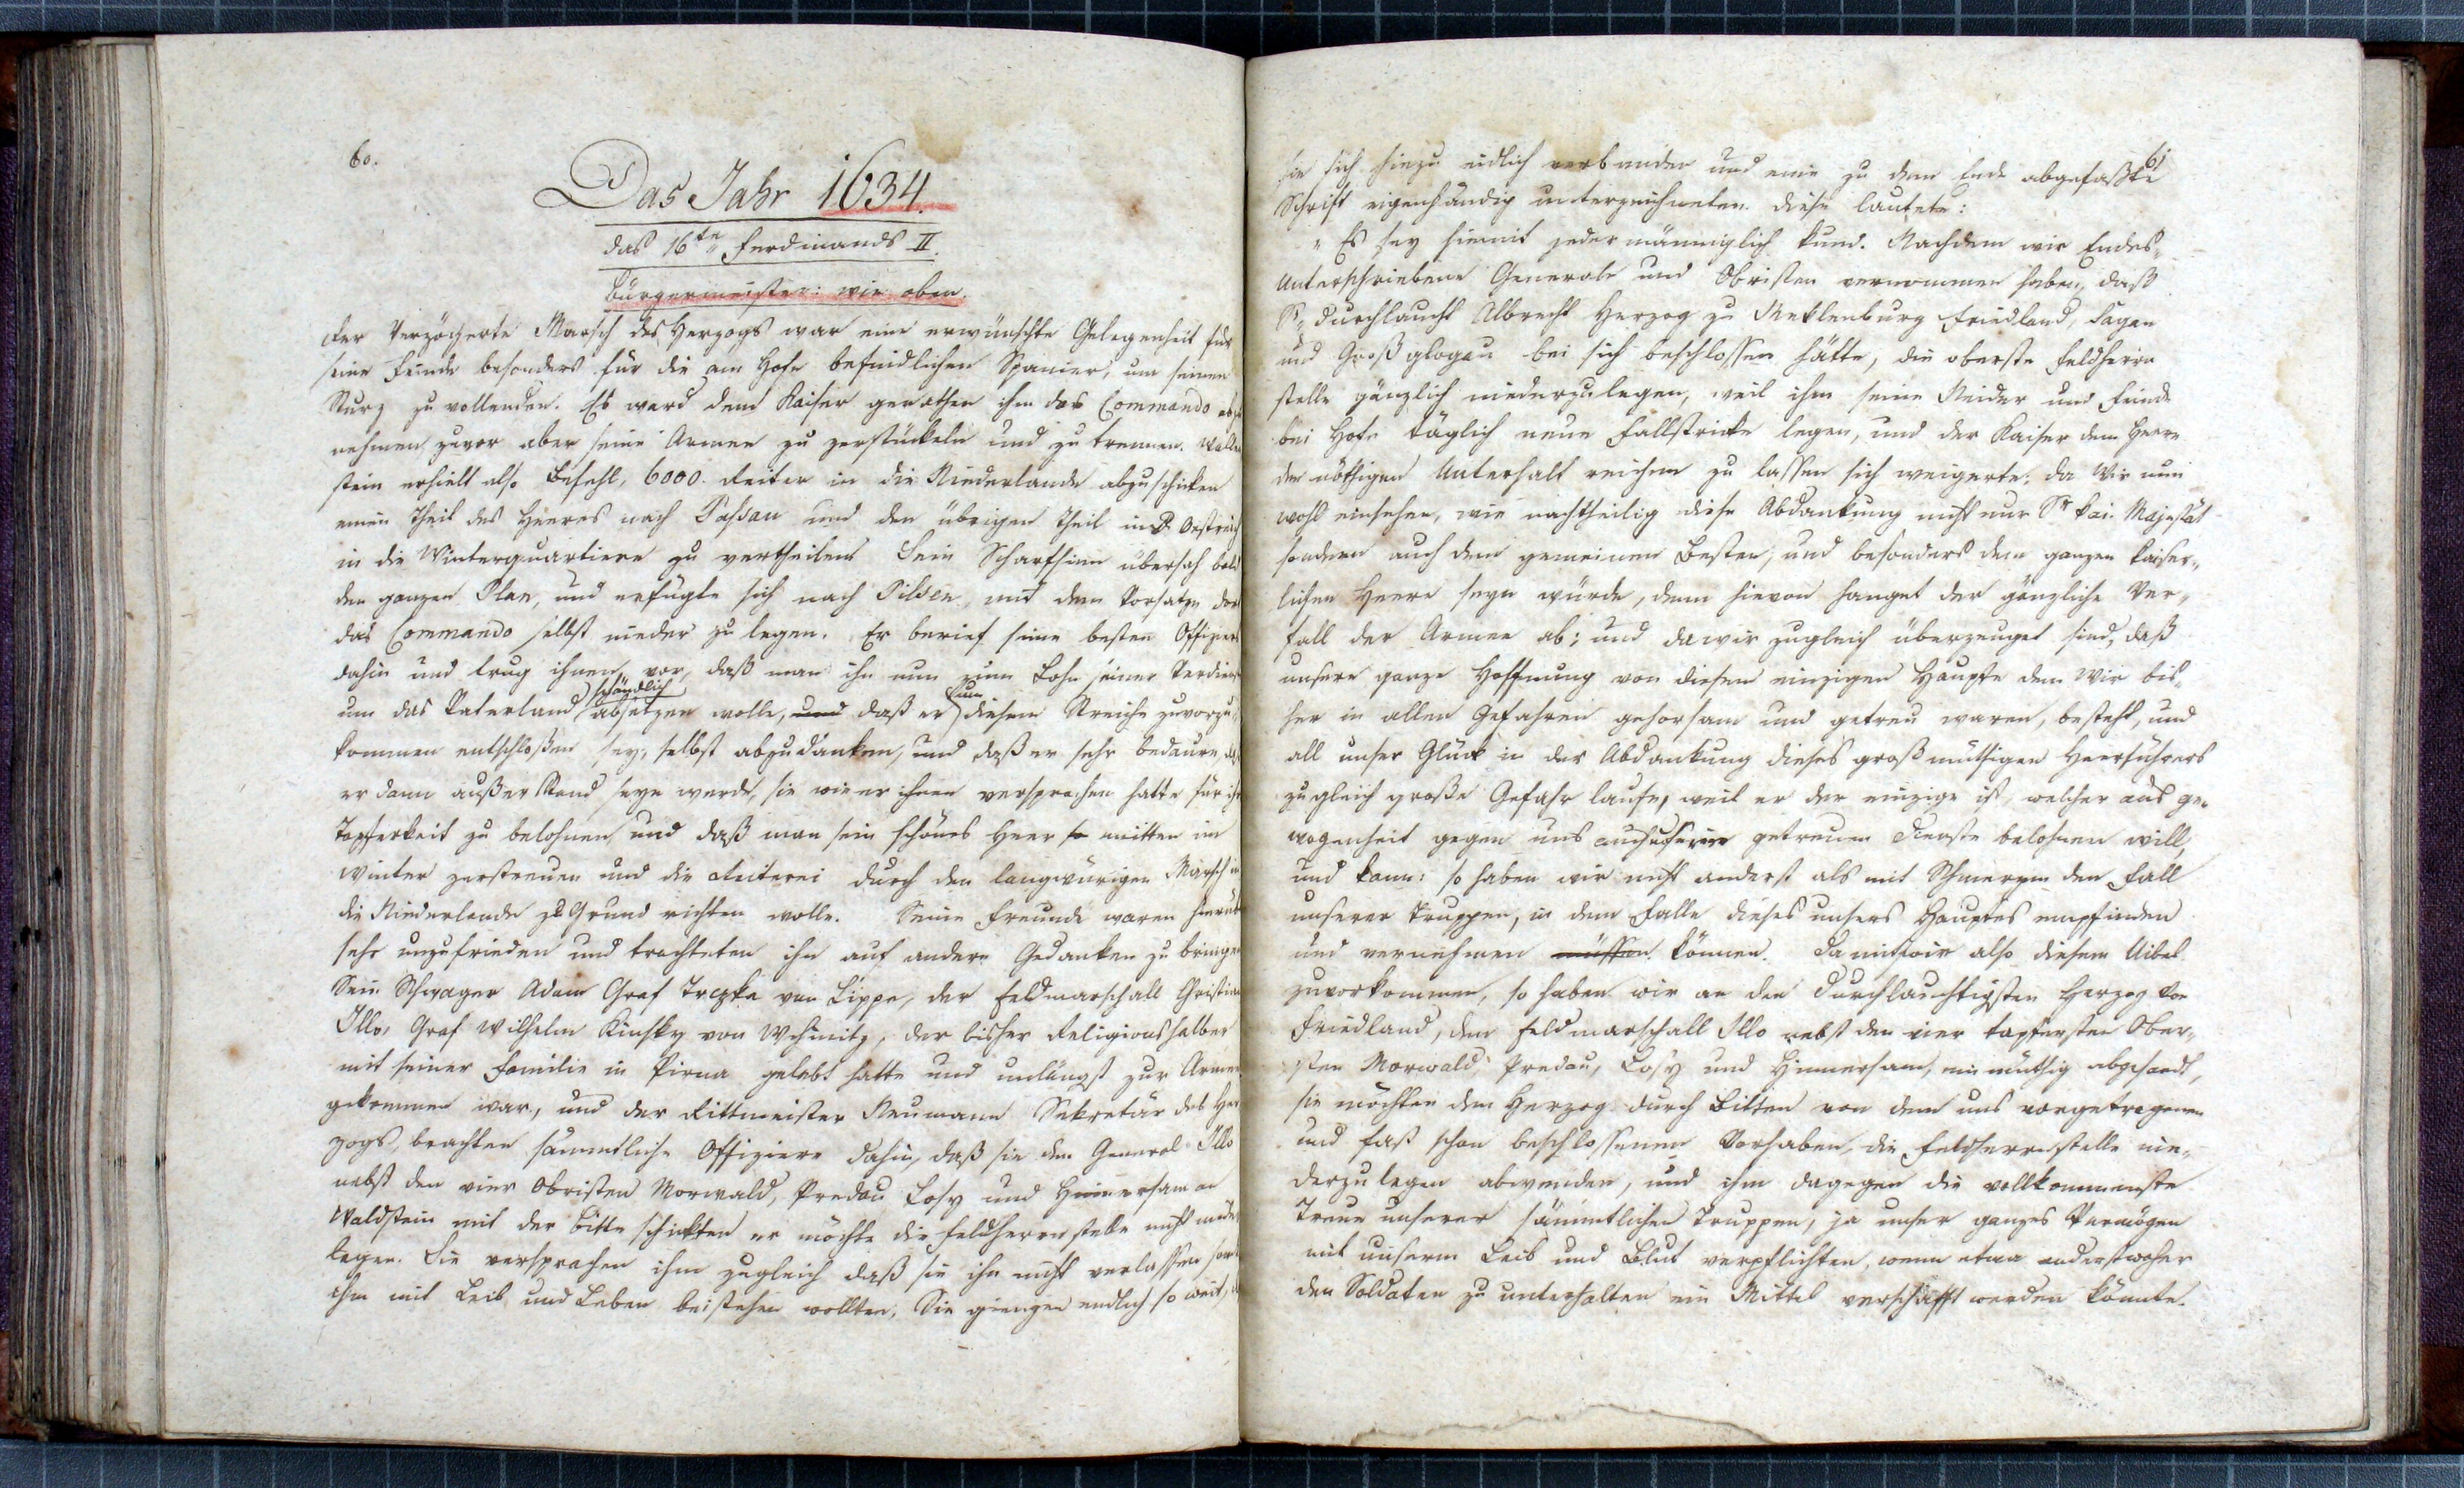 60.
Das Jahr 1634.
das 16te Ferdinands II.
Bürgermeister: wie oben.
Der Verzögerte Marsch des Herzogs war eine erwünschte Gelegenheit für
seine Feinde besonders für die am Hofe befindlichen Spanier, um seinen
Sturz zu vollenden. Es ward dem Kaiser gerathen ihm das Commando abzu
nehmen, zuvor aber seine Armee zu zerstückeln und zu trennen. Wallen
stein erhielt also Befehl, 6000. Reiter in die Niederlande abzuschicken
einen Theil des Heeres nach Passau und den übrigen Theil in Oestreich
in die Winterquartiere zu vertheilen. Sein Scharfsinn übersah bald
den ganzen Plan, und verfügte sich nach Pilsen, mit dem Vorsatze dort
das Commando selbst nieder zu legen. Er berief seine besten Offiziers
dahin und trug ihnen vor, daß man ihn nun zum Lohn seiner Verdienst
um das Vaterland schändlich absetzen wolle, und daß er um diesem Streiche zuvorzu-
kommen entschloßen sey, selbst abzudanken, und daß er sehr bedaure, daß
er dann außer Stand seyn werde, sie wie er ihnen versprochen hatte für ihre
Tapferkeit zu belohnen, und daß man sein schönes Heer so mitten im
Winter zerstreuen und die Reiterei durch den langwürigen Marsch in
die Niederlande zu Grund richten wolle. Seine Freunde waren hierüb
sehr unzufrieden und trachteten ihn auf andere Gedanken zu bringen
Sein Schwager Adam Graf Trczka von Lippe, der Feldmarschall Christian
Illo, Graf Wilhelm Kinsky von Wchinitz, der bisher Religionshalber
mit seiner Familie in Pirna gelebt hatte und unlängst zur Armee
gekommen war, und der Rittmeister Neumann Sekretär des Her
zogs, brachten sämmtliche Offiziere dahin, daß sie den General Illo
nebst den vier Obristen Morwald, Predau Losy und Hinnersam an
Waldstein mit der Bitte schickten er möchte die Feldherrn stelle nicht nieder
legen. Sie versprachen ihm zugleich daß sie ihn nicht verlassen sond
ihm mit Leib und Leben beistehen wollten, Sie giengen endlich so weit,
61
sie sich hiezu eidlich verbanden und eine zu dem Ende abgefaßte
Schrift eigenhändig unterzeichneten. Diese lautete:
"Es sey hiemit jedermänniglich kund. Nachdem wir Endes-
Unterschriebene Generale und Obristen vernommen haben, daß
Sr Durchlaucht Albrecht Herzog zu Meklenburg Friedland, Sagan
und Großglogau bei sich beschlossen hätte, die oberste Feldherrn
stelle gänzlich niederzulegen, weil ihm seine Neider und Feinde
bei Hofe täglich neue Fallstricke legen, und der Kaiser dem Heere
den nöthigen Unterhalt reichen zu lassen sich weigerte. Da Wir nun
wohl einsehen, wie nachtheilig diese Abdankung nicht nur Sr kai. Majestät
sondern auch dem gemeinen Besten, und besonders dem ganzen kaiser-
lichen Heere seyn würde, denn hievon hanget der gänzliche Ver-
fall der Armee ab; und da wir zugleich überzeuget sind, daß
unsere ganze Hoffnung von diesem einzigen Haupte dem Wir bis-
her in allen Gefahren gehorsam und getreu waren, besteht, und
all unser Glück in der Abdankung dieses großmüthigen Heerführers
zugleich große Gefahr laufe, weil er der einzige ist, welcher aus ge-
wogenheit gegen uns auch unsere getreuen Dienste belohnen will,
und kann: so haben wir nicht anderst als mit Schmerzen den Fall
unserer Truppen, in dem Falle dieses unsers Hauptes empfinden
und vernehmen müssen können. Damit wir also diesem Uibel
zuvorkommen, so haben wir an den Durchlauchtigsten Herzog von
Friedland, den Feldmarschall Illo nebst den vier tapfersten Ober-
sten Morwald, Predau, Losy und Hinnersam, einmüthig abgesandt,
sie möchten den Herzog durch Bitten von dem uns vorgetragenen
und fast schon beschlossenen Vorhaben, die Feldherrnstelle nie-
derzulegen abwenden, und ihm dagegen die vollkommenste
Treue unserer sämmtlichen Truppen, ja unser ganzes Vermögen
mit unserm Leib und Blut verpflichten, wenn etwa anderstwoher
den Soldaten zu unterhalten ein Mittel verschafft werden könnte.